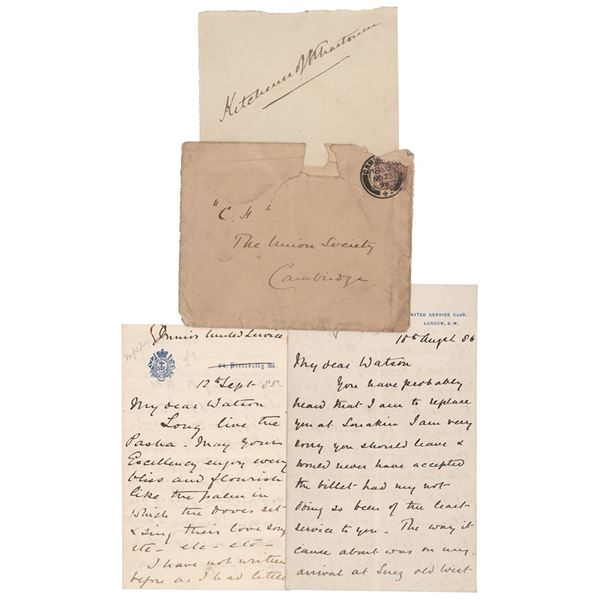 Kitchener of Khartoum
"C. H."
The Union Society
Cambridge
Junior United Service
12th Sept 85
My dear Watson
Long live the
Pasha - May Your
Excellency enjoy every
bliss and flourish
like the palm in
which the doves sit
& sing their love song
etc - etc - etc -
I have not written
before as I had little
UNITED SERVICE CLUB,
LONDON, S.W.
10th Augst 86
My dear Watson
You have probably
heard that I am to replace
you at Souakin I am very
sorry you should leave &
would never have accepted
the billet had my not
doing so been of the least
service to you - The way it
came about was on my
arrival at Suez old West